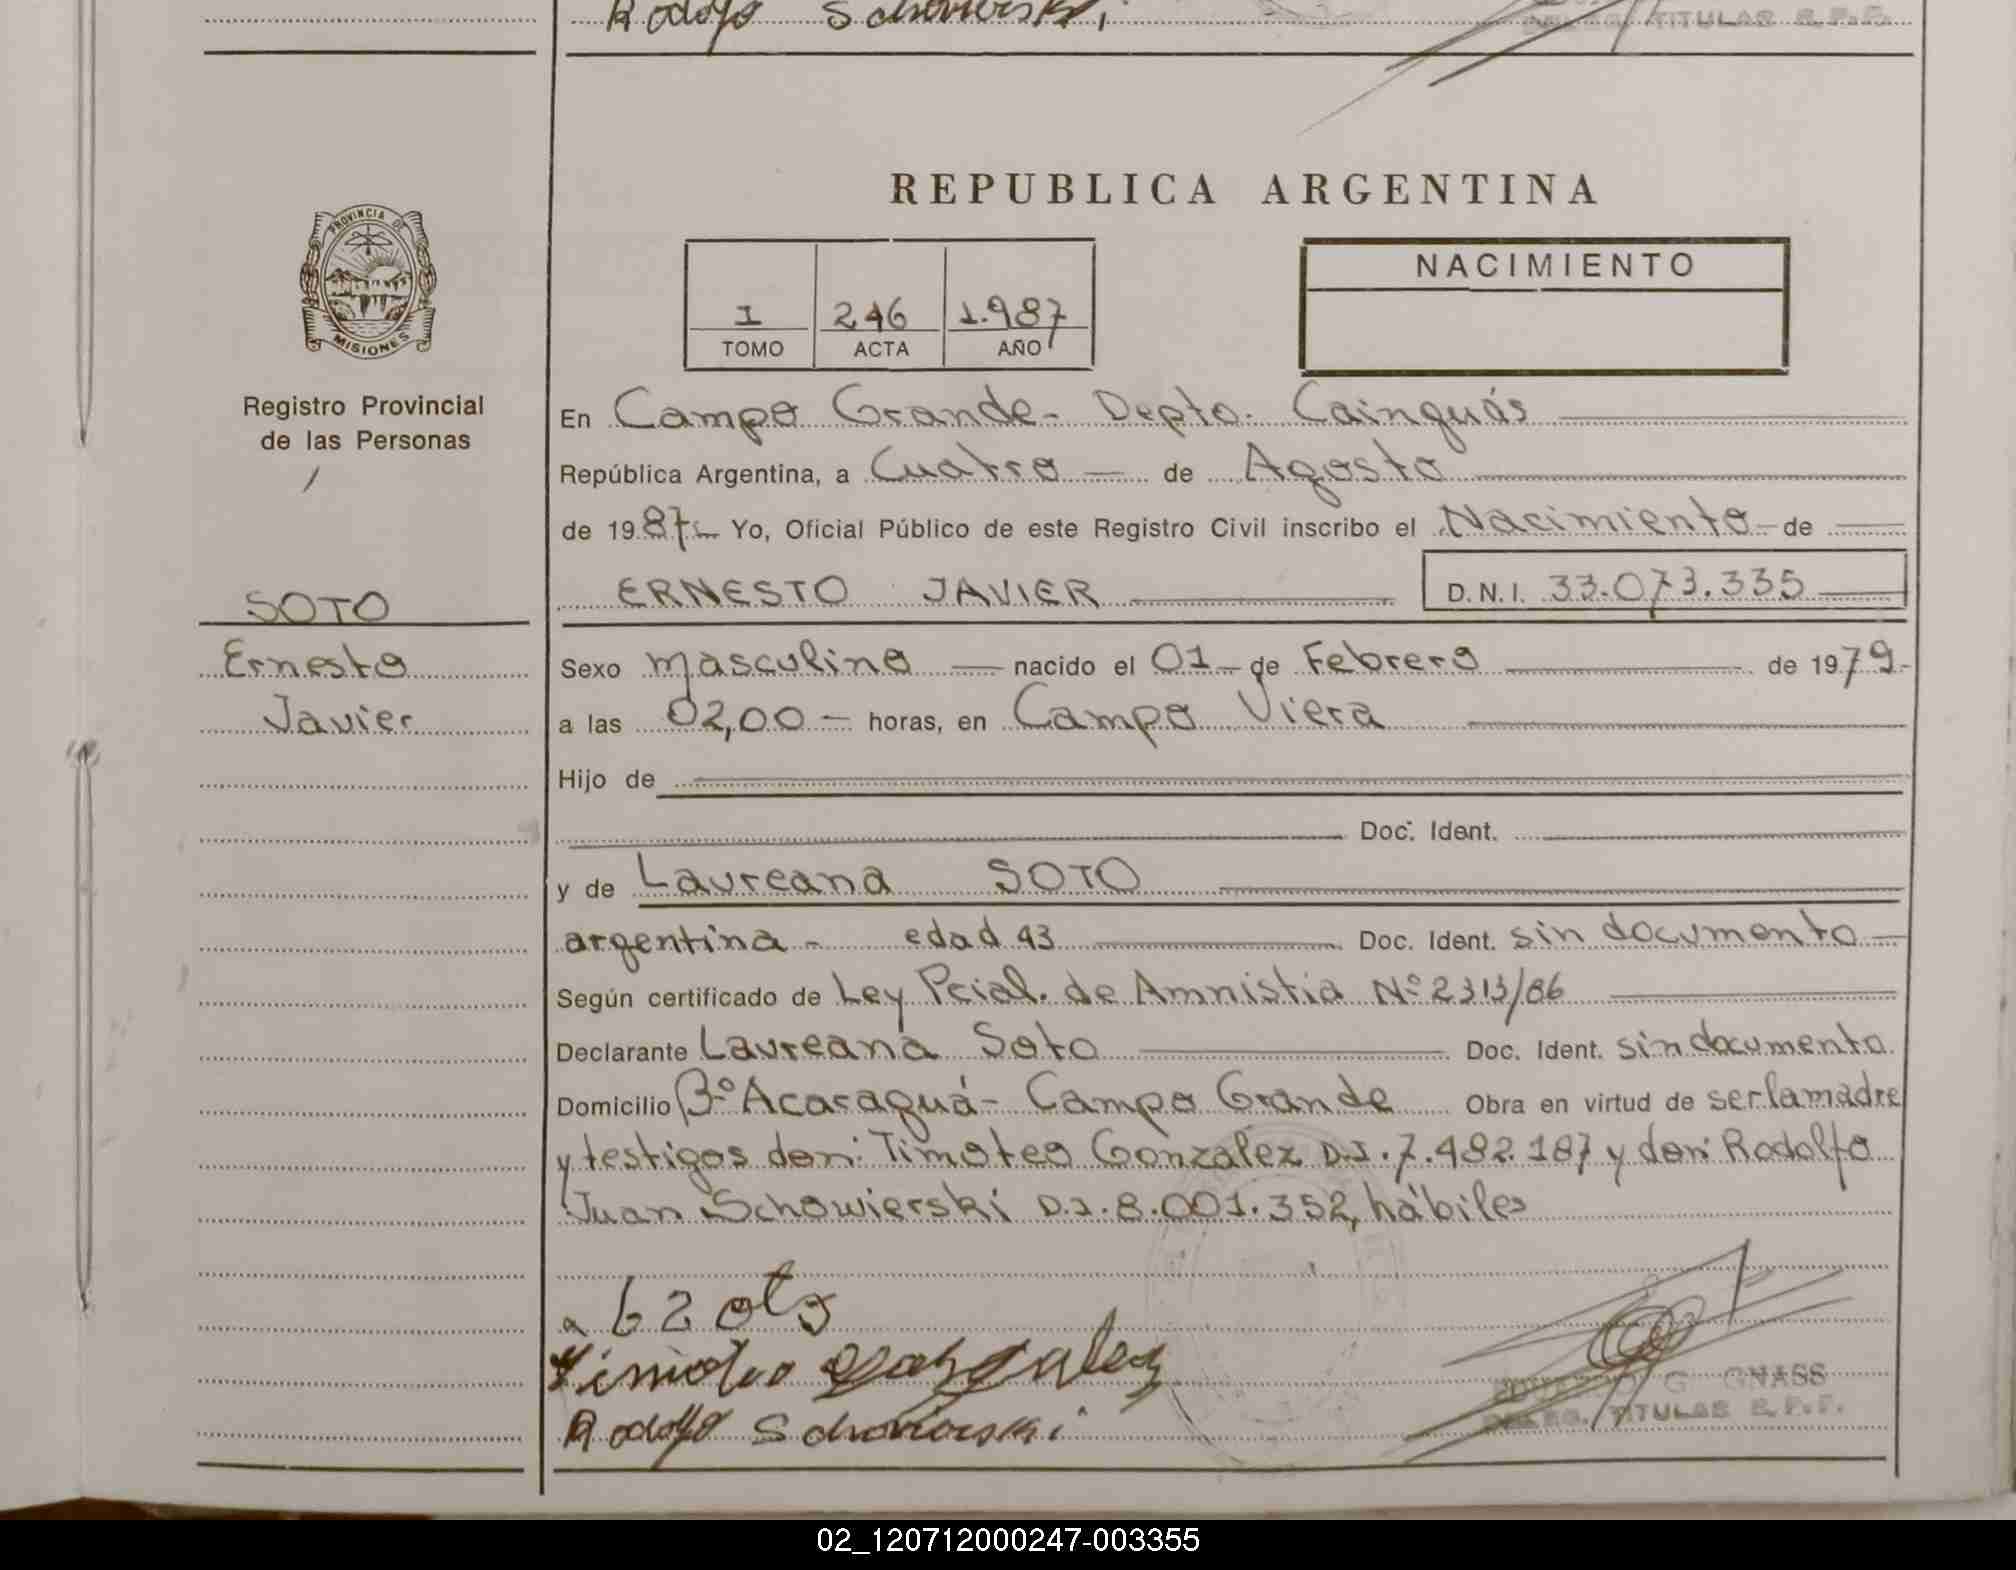 Rodolfo Schowierski
DELEG. TITULAR R.P.P.
REPUBLICA ARGENTINA
PROVINCIA DE
MISIONES
NACIMIENTO
1 246 1.987
TOMO ACTA AÑO
Registro Provincial
de las Personas
En Campo Grande- Depto. Cainguás
República Argentina, a Cuatro — de Agosto
de 1987- Yo, Oficial Público de este Registro Civil inscribo el Nacimiento - de
ERNESTO JAVIER D.N.I. 33.073.335
SOTO
Ernesto
Javier
Sexo masculino — nacido el 01 - de Febrero de 1979-
a las 02,00 - horas, en Campo Viera
Hijo de
Doc. Ident.
y de Laureana SOTO
argentina - edad 43 Doc. Ident. sin documento
Según certificado de Ley Pcial. de Amnistia Nº 2313/86
Declarante Laureana Soto Doc. Ident. sin documento
Domicilio Bº Acaraguá- Campo Grande Obra en virtud de ser la madre
y testigos don: Timoteo Gonzalez D.I. 7.482.187 y don: Rodolfo
Juan Schowierski D.I. 8.001.352, hábiles
Timoteo Gonzalez
Rodolfo Schowierski
G. GNASS
DELEG. TITULAR R.P.P.
02_120712000247-003355